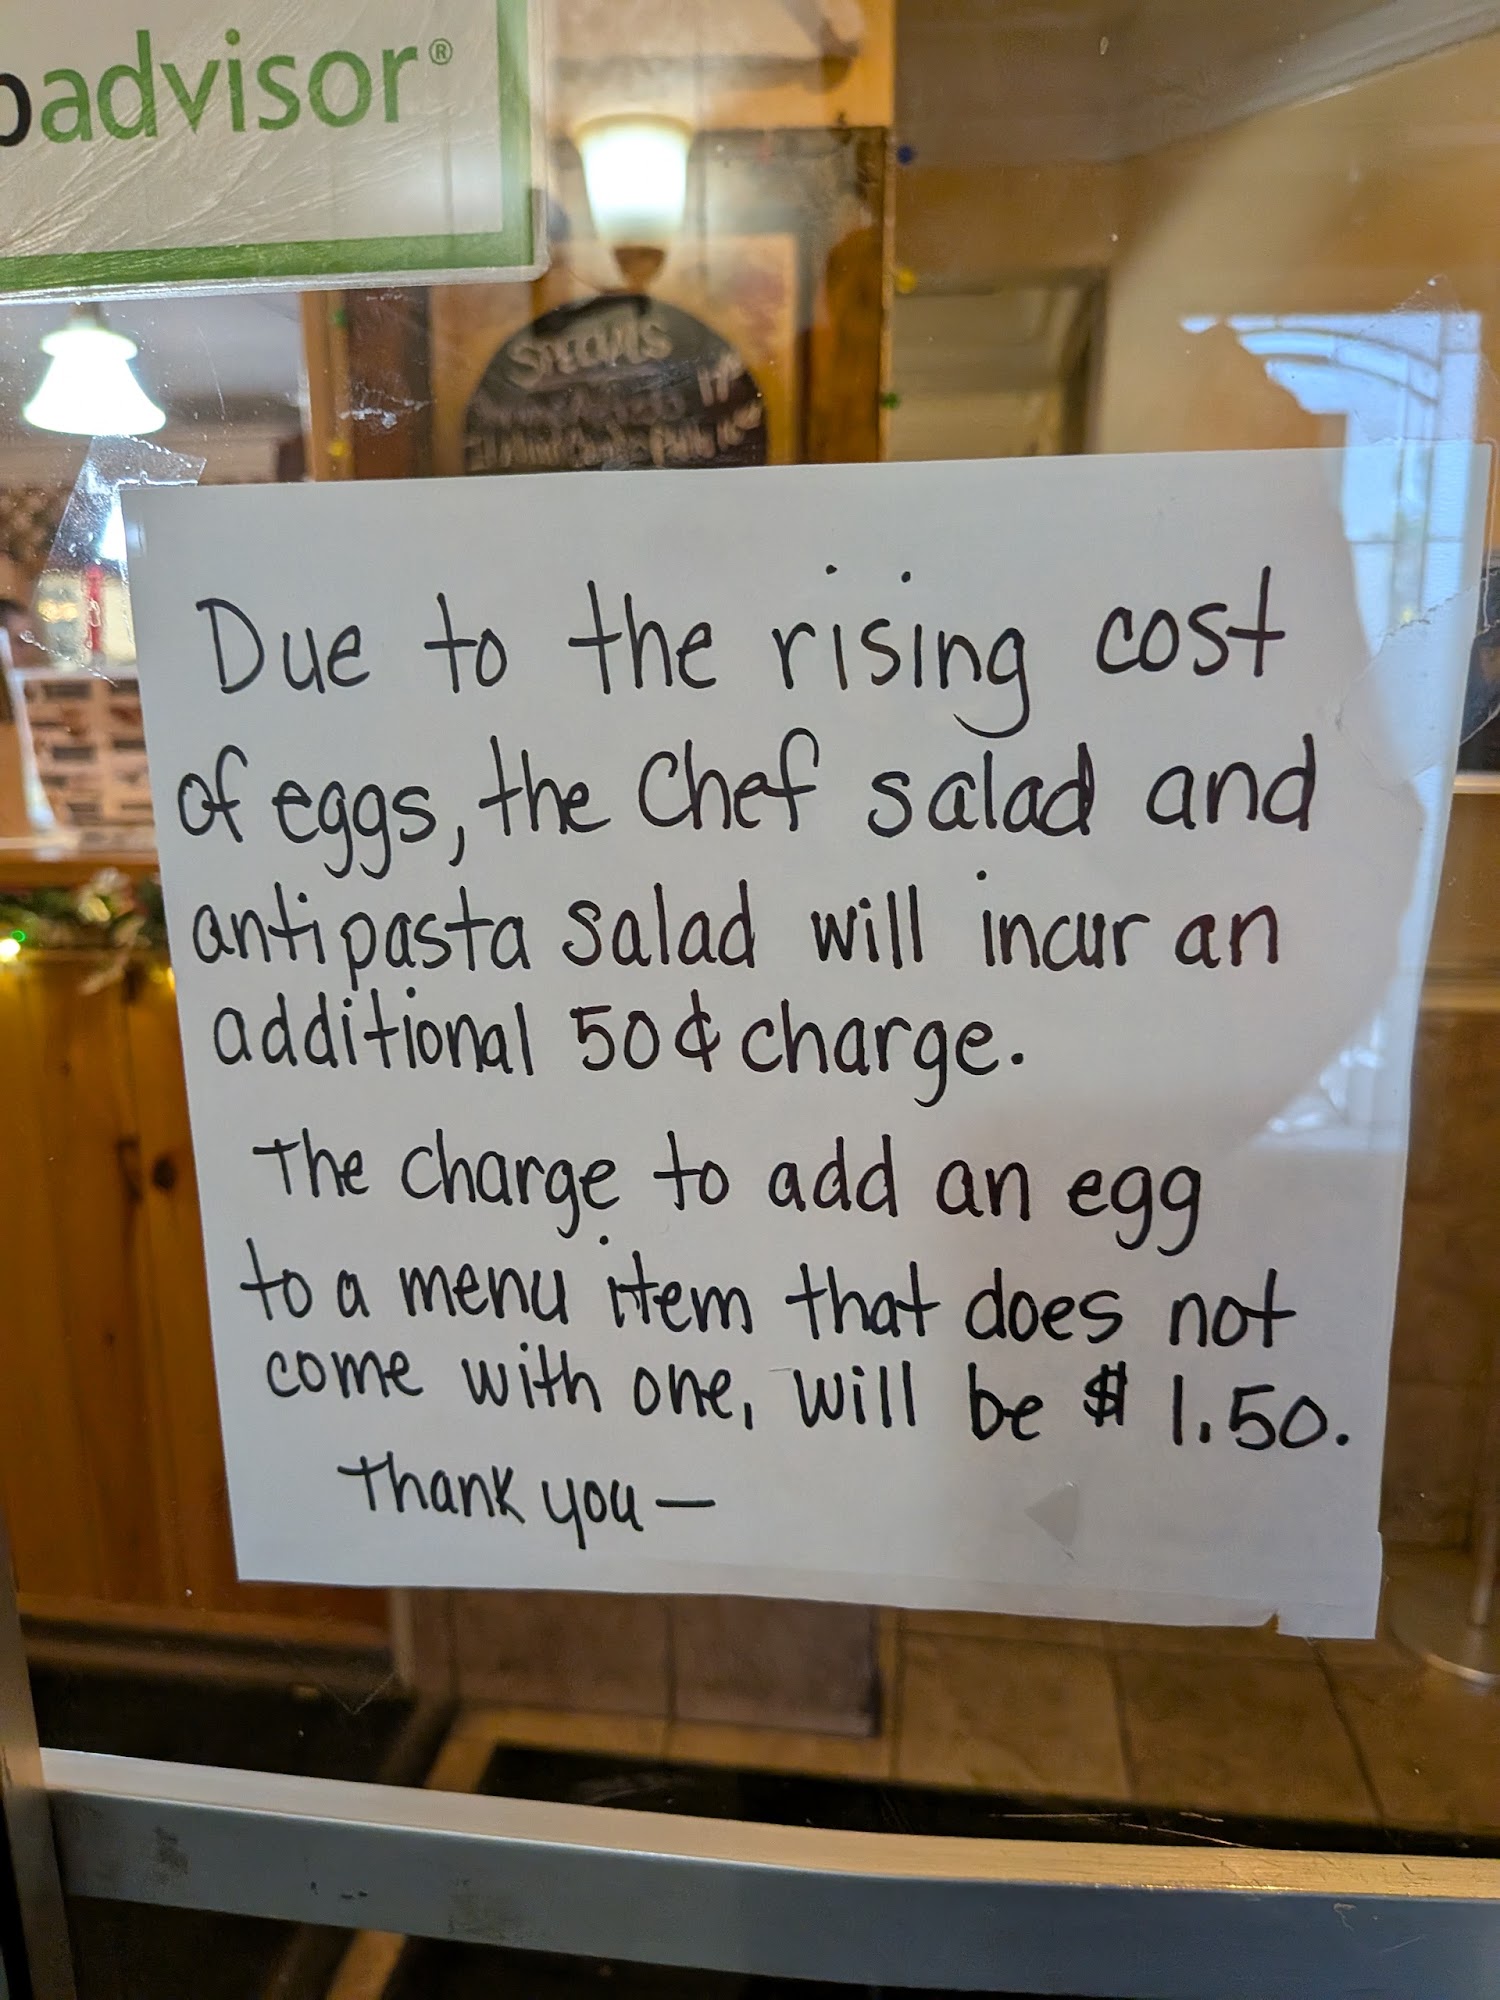 advisor®
SPECIALS
Due to the rising cost
of eggs, the Chef salad and
antipasta salad will incur an
additional 50¢ charge.
The charge to add an egg
to a menu item that does not
come with one, will be $1.50.
Thank you —